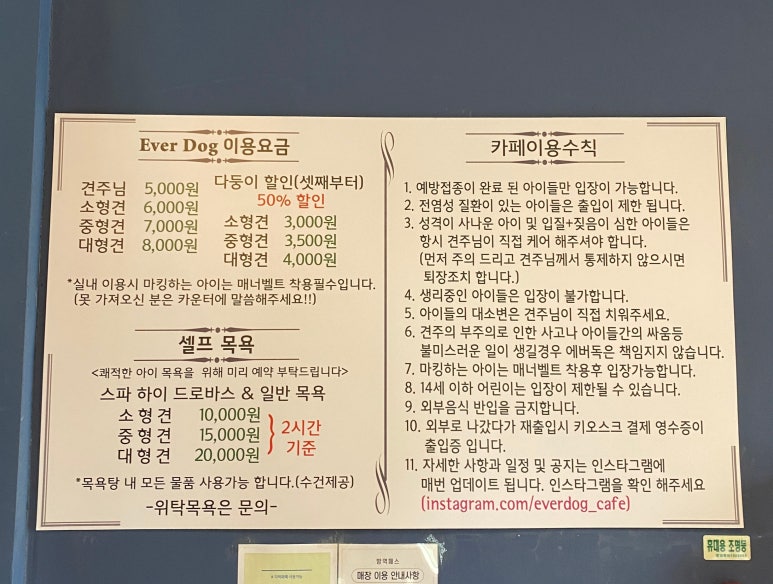 Ever Dog 이용요금
견주님 5,000원
소형견 6,000원
중형견 7,000원
대형견 8,000원
다둥이 할인(셋째부터)
50% 할인
소형견 3,000원
중형견 3,500원
대형견 4,000원
*실내 이용시 마킹하는 아이는 매너벨트 착용필수입니다.
(못 가져오신 분은 카운터에 말씀해주세요!!)
셀프 목욕
<쾌적한 아이 목욕을 위해 미리 예약 부탁드립니다>
스파 하이 드로바스 & 일반 목욕
소형견 10,000원
중형견 15,000원
대형견 20,000원
2시간
기준
*목욕탕 내 모든 물품 사용가능 합니다.(수건제공)
-위탁목욕은 문의-
카페이용수칙
1. 예방접종이 완료 된 아이들만 입장이 가능합니다.
2. 전염성 질환이 있는 아이들은 출입이 제한 됩니다.
3. 성격이 사나운 아이 및 입질+짖음이 심한 아이들은
항시 견주님이 직접 케어 해주셔야 합니다.
(먼저 주의 드리고 견주님께서 통제하지 않으시면
퇴장조치 합니다.)
4. 생리중인 아이들은 입장이 불가합니다.
5. 아이들의 대소변은 견주님이 직접 치워주세요.
6. 견주의 부주의로 인한 사고나 아이들간의 싸움등
불미스러운 일이 생길경우 에버독은 책임지지 않습니다.
7. 마킹하는 아이는 매너벨트 착용후 입장가능합니다.
8. 14세 이하 어린이는 입장이 제한될 수 있습니다.
9. 외부음식 반입을 금지합니다.
10. 외부로 나갔다가 재출입시 키오스크 결제 영수증이
출입증 입니다.
11. 자세한 사항과 일정 및 공지는 인스타그램에
매번 업데이트 됩니다. 인스타그램을 확인 해주세요
(instagram.com/everdog_cafe)
휴대용 조명등
방역패스
매장 이용 안내사항